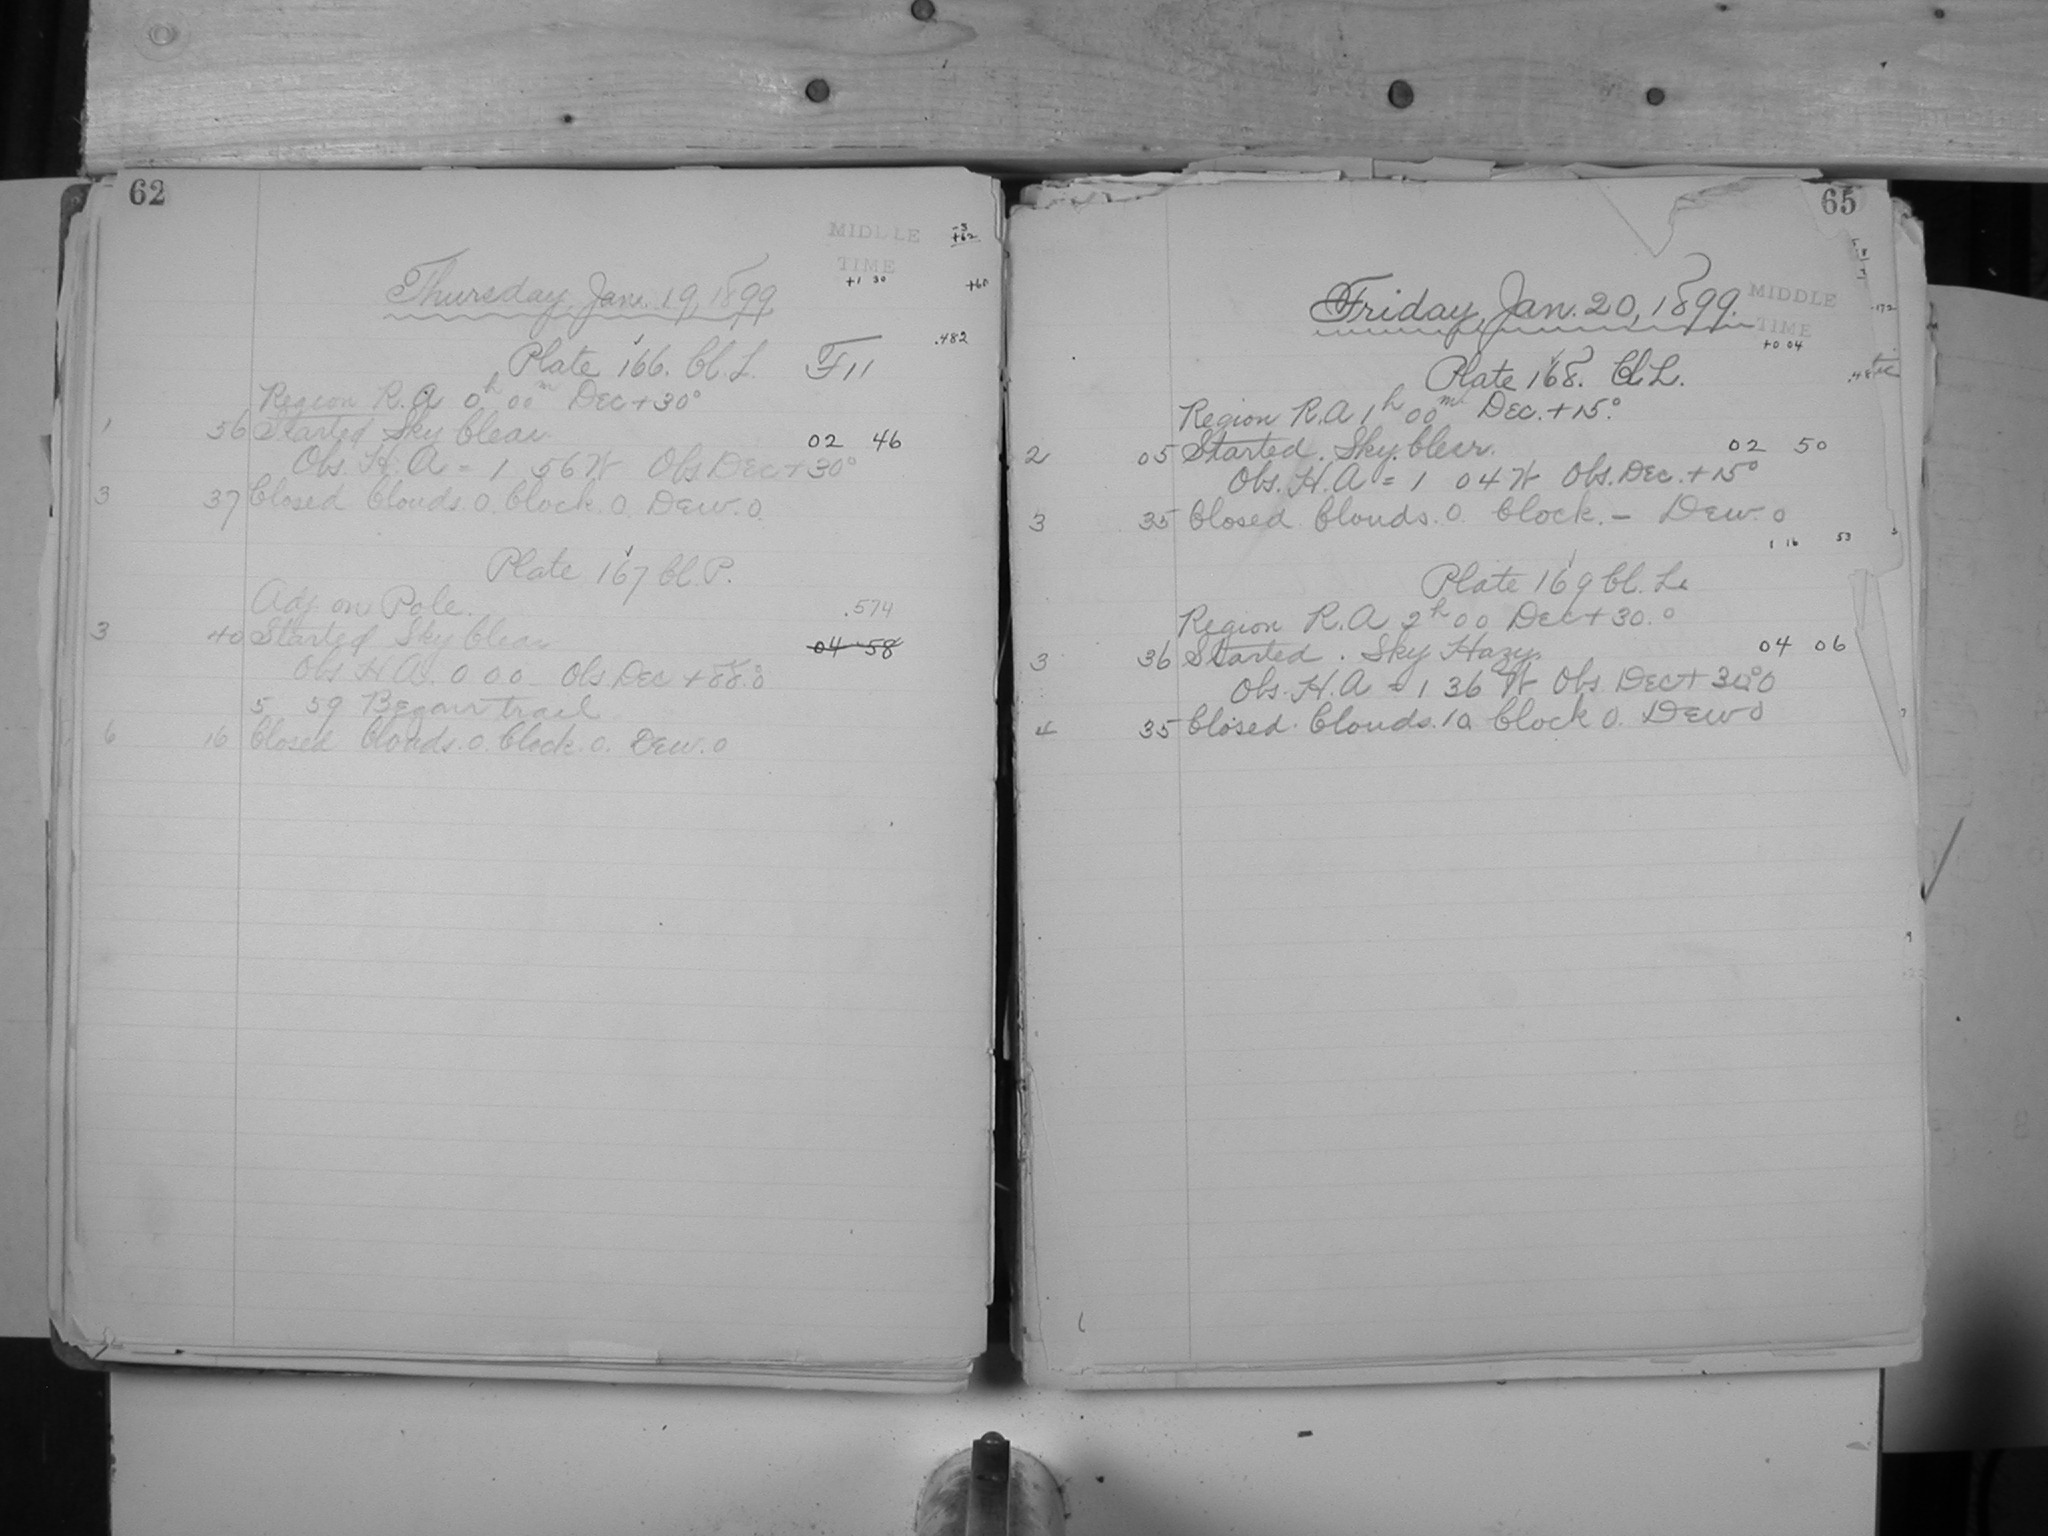 62
MIDDLE -3
+62
TIME
+1 30 +60
Thursday, Jan. 19, 1899
.482
Plate 166. Cl. L. F11
Region R.A 0h 00m Dec +30°
1 56 Started Sky Clear 02 46
Obs. H.A = 1 56 W Obs Dec + 30°
3 37 Closed Clouds. 0. Clock. 0. Dew. 0.
Plate 167 Cl. P.
Adj on Pole. .574
3 40 Started Sky Clear 04 58
Obs H.A. 0 00 Obs Dec + 88°.0
5 59 Began trail
6 16 Closed Clouds. 0. Clock. 0. Dew. 0
65
MIDDLE
Friday, Jan. 20, 1899.
TIME
+0 04
-172
Plate 168. Cl L.
Region R.A 1h 00m Dec. +15°
2 05 Started. Sky Clear. 02 50
Obs. H.A = 1 04 W Obs. Dec. +15°
3 35 Closed. Clouds. 0. Clock. – Dew. 0
1 16 53
Plate 169 Cl. L.
Region R.A 2h 00 Dec + 30.0
3 36 Started. Sky Hazy. 04 06
Obs. H.A = 1 36 W Obs Dec + 30°.0
4 35 Closed. Clouds. 10. Clock 0. Dew 0